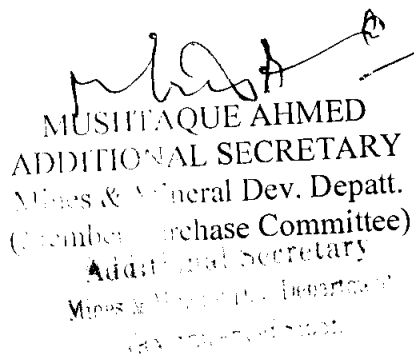 MUSHTAQUE AHMED
ADDITIONAL SECRETARY
Mines & Mineral Dev. Depatt.
(Member Purchase Committee)
Additional Secretary
Mines & Department